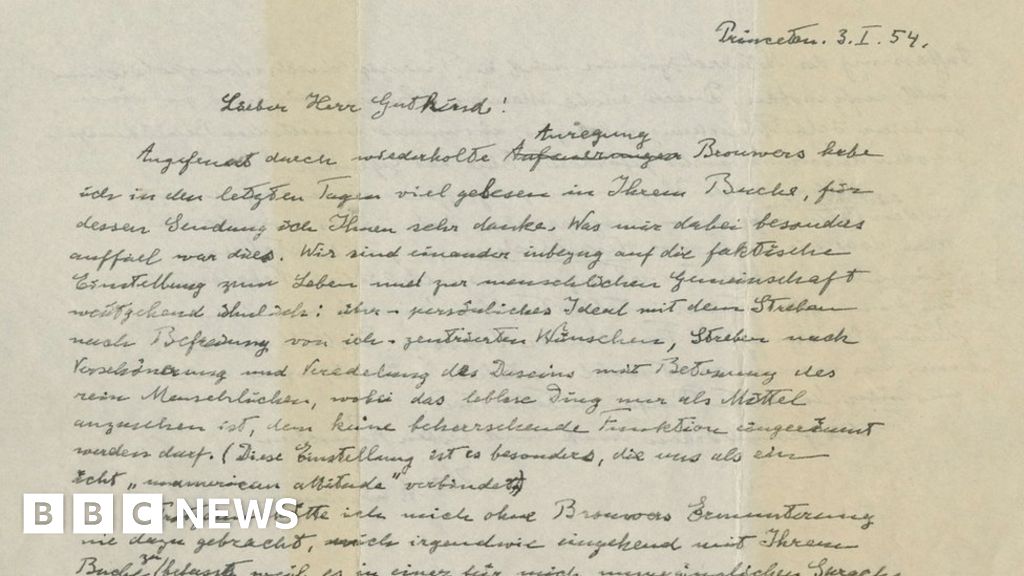 Princeton. 3. I. 54.
Lieber Herr Gutkind!
Anregung
Angefeuert durch wiederholte Brouwers habe
ich in den letzten Tagen viel gelesen in Ihrem Buche, für
dessen Sendung ich Ihnen sehr danke. Was mir dabei besonders
auffiel war dies. Wir sind einander inbezug auf die faktische
Einstellung zum Leben und zur menschlichen Gemeinschaft
weitgehend ähnlich: persönliches Ideal mit dem Streben
nach Befreiung von ich-zentrierten Wünschen, Streben nach
Verschönerung und Veredelung des Daseins mit Betonung des
rein Menschlichen, wobei das leblose Ding nur als Mittel
anzusehen ist, dem keine beherrschende Funktion eingeräumt
werden darf. (Diese Einstellung ist es besonders, die uns als ein
echt „unamerican attitude" verbindet)
BBC NEWS hätte ich mich ohne Brouwers Ermunterung
nie dazu gebracht, mich irgendwie eingehend mit Ihrem
zu
Buche befassen weil es in einer für mich Sprache